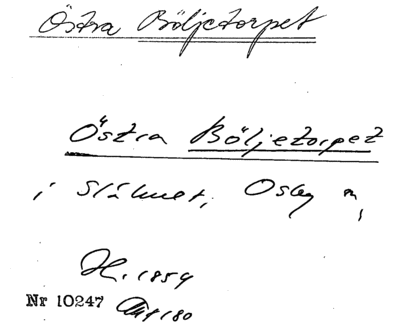 Östra Böljetorpet
Östra Böljetorpet
i Slähult, Osby
H. 1854
Nr 10247